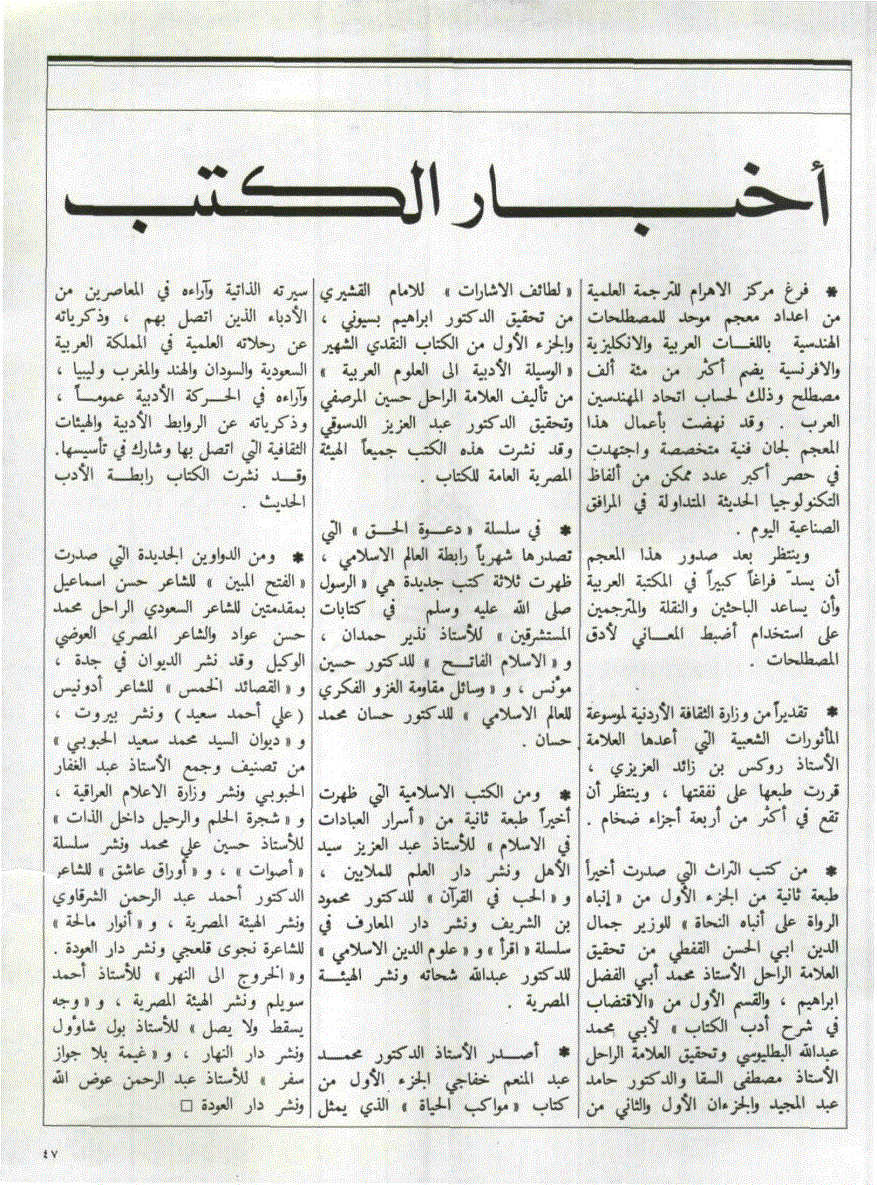 أخبار الكتب
* فرغ مركز الاهرام للترجمة العلمية
من اعداد معجم موحد للمصطلحات
الهندسية باللغات العربية والانكليزية
والافرنسية يضم أكثر من مئة ألف
مصطلح وذلك لحساب اتحاد المهندسين
العرب . وقد نهضت بأعمال هذا
المعجم لجان فنية متخصصة واجتهدت
في حصر أكبر عدد ممكن من ألفاظ
التكنولوجيا الحديثة المتداولة في المرافق
الصناعية اليوم .
وينتظر بعد صدور هذا المعجم
أن يسدّ فراغاً كبيراً في المكتبة العربية
وأن يساعد الباحثين والنقلة والمترجمين
على استخدام أضبط المعاني لأدق
المصطلحات .
* تقديراً من وزارة الثقافة الأردنية لموسوعة
المأثورات الشعبية التي أعدها العلامة
الأستاذ روكس بن زائد العزيزي ،
قررت طبعها على نفقتها ، وينتظر أن
تقع في أكثر من أربعة أجزاء ضخام .
* من كتب التراث التي صدرت أخيراً
طبعة ثانية من الجزء الأول من « إنباه
الرواة على أنباه النحاة » للوزير جمال
الدين ابي الحسن القفطي من تحقيق
العلامة الراحل الأستاذ محمد أبي الفضل
ابراهيم ، والقسم الأول من «الاقتضاب
في شرح أدب الكتاب » لأبي محمد
عبدالله البطليوسي وتحقيق العلامة الراحل
الأستاذ مصطفى السقا والدكتور حامد
عبد المجيد والجزءان الأول والثاني من
« لطائف الاشارات » للامام القشيري
من تحقيق الدكتور ابراهيم بسيوني ،
والجزء الأول من الكتاب النقدي الشهير
« الوسيلة الأدبية الى العلوم العربية »
من تأليف العلامة الراحل حسين المرصفي
وتحقيق الدكتور عبد العزيز الدسوقي
وقد نشرت هذه الكتب جميعاً الهيئة
المصرية العامة للكتاب .
* في سلسلة « دعوة الحق » التي
تصدرها شهرياً رابطة العالم الاسلامي ،
ظهرت ثلاثة كتب جديدة هي « الرسول
صلى الله عليه وسلم في كتابات
المستشرقين » للأستاذ نذير حمدان ،
و « الاسلام الفاتح » للدكتور حسين
مؤنس ، و « وسائل مقاومة الغزو الفكري
للعالم الاسلامي » للدكتور حسان محمد
حسان .
* ومن الكتب الاسلامية التي ظهرت
أخيراً طبعة ثانية من « أسرار العبادات
في الاسلام » للأستاذ عبد العزيز سيد
الأهل ونشر دار العلم للملايين ،
و « الحب في القرآن » للدكتور محمود
بن الشريف ونشر دار المعارف في
سلسلة « اقرأ » و « علوم الدين الاسلامي »
للدكتور عبدالله شحاته ونشر الهيئة
المصرية .
* أصدر الأستاذ الدكتور محمد
عبد المنعم خفاجي الجزء الأول من
كتاب « مواكب الحياة » الذي يمثل
سيرته الذاتية وآراءه في المعاصرين من
الأدباء الذين اتصل بهم ، وذكرياته
عن رحلاته العلمية في المملكة العربية
السعودية والسودان والهند والمغرب وليبيا ،
وآراءه في الحركة الأدبية عموماً ،
وذكرياته عن الروابط الأدبية والهيئات
الثقافية التي اتصل بها وشارك في تأسيسها.
وقد نشرت الكتاب رابطة الأدب
الحديث .
* ومن الدواوين الجديدة التي صدرت
« الفتح المبين » للشاعر حسن اسماعيل
بمقدمتين للشاعر السعودي الراحل محمد
حسن عواد والشاعر المصري العوضي
الوكيل وقد نشر الديوان في جدة ،
و « القصائد الخمس » للشاعر أدونيس
( علي أحمد سعيد ) ونشر بيروت ،
و « ديوان السيد محمد سعيد الحبوبي »
من تصنيف وجمع الأستاذ عبد الغفار
الحبوبي ونشر وزارة الاعلام العراقية ،
و « شجرة الحلم والرحيل داخل الذات »
للأستاذ حسين علي محمد ونشر سلسلة
« أصوات » ، و « أوراق عاشق » للشاعر
الدكتور أحمد عبد الرحمن الشرقاوي
ونشر الهيئة المصرية ، و « أنوار مالحة »
للشاعرة نجوى قلعجي ونشر دار العودة .
و« الخروج الى النهر » للأستاذ أحمد
سويلم ونشر الهيئة المصرية ، و « وجه
يسقط ولا يصل » للأستاذ بول شاؤول
ونشر دار النهار ، و « غيمة بلا جواز
سفر » للأستاذ عبد الرحمن عوض الله
ونشر دار العودة □
٤٧